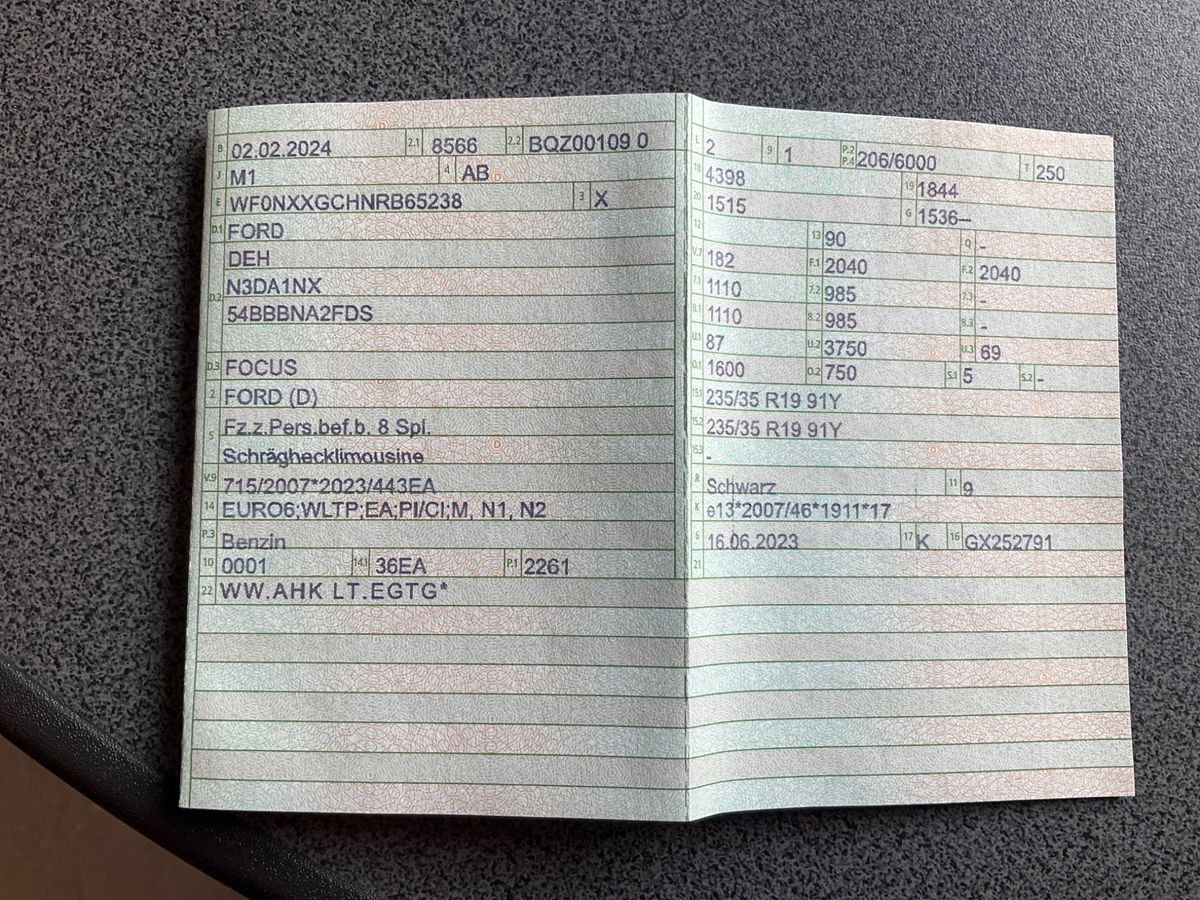 B 02.02.2024 2.1 8566 2.2 BQZ00109 0
J M1 4 AB
E WF0NXXGCHNRB65238 3 X
D.1 FORD
DEH
D.2 N3DA1NX
54BBBNA2FDS
D.3 FOCUS
2 FORD (D)
5 Fz.z.Pers.bef.b. 8 Spl.
Schräghecklimousine
V.9 715/2007*2023/443EA
14 EURO6;WLTP;EA;PI/CI;M, N1, N2
P.3 Benzin
10 0001 14.1 36EA P.1 2261
22 WW.AHK LT.EGTG*
L 2 9 1 P.2 P.4 206/6000 T 250
18 4398 19 1844
20 1515 G 1536–
12 13 90 Q -
V.7 182 F.1 2040 F.2 2040
7.1 1110 7.2 985 7.3 -
8.1 1110 8.2 985 8.3 -
U.1 87 U.2 3750 U.3 69
O.1 1600 O.2 750 S.1 5 S.2 -
15.1 235/35 R19 91Y
15.2 235/35 R19 91Y
15.3 -
R Schwarz 11 9
K e13*2007/46*1911*17
6 16.06.2023 17 K 16 GX252791
21